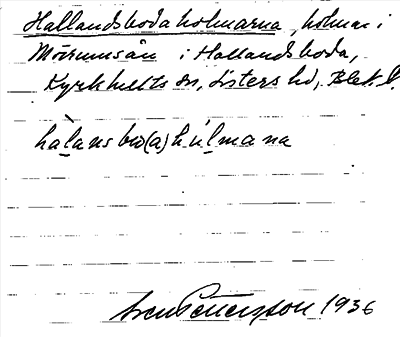 Hallandsboda holmarna, holmar i
Mörrumsån i Hallandsboda,
Kyrkhults sn, Listers hd, Blek. l.
hàlansbo(a)hùlmana
Sven Pettersson 1936